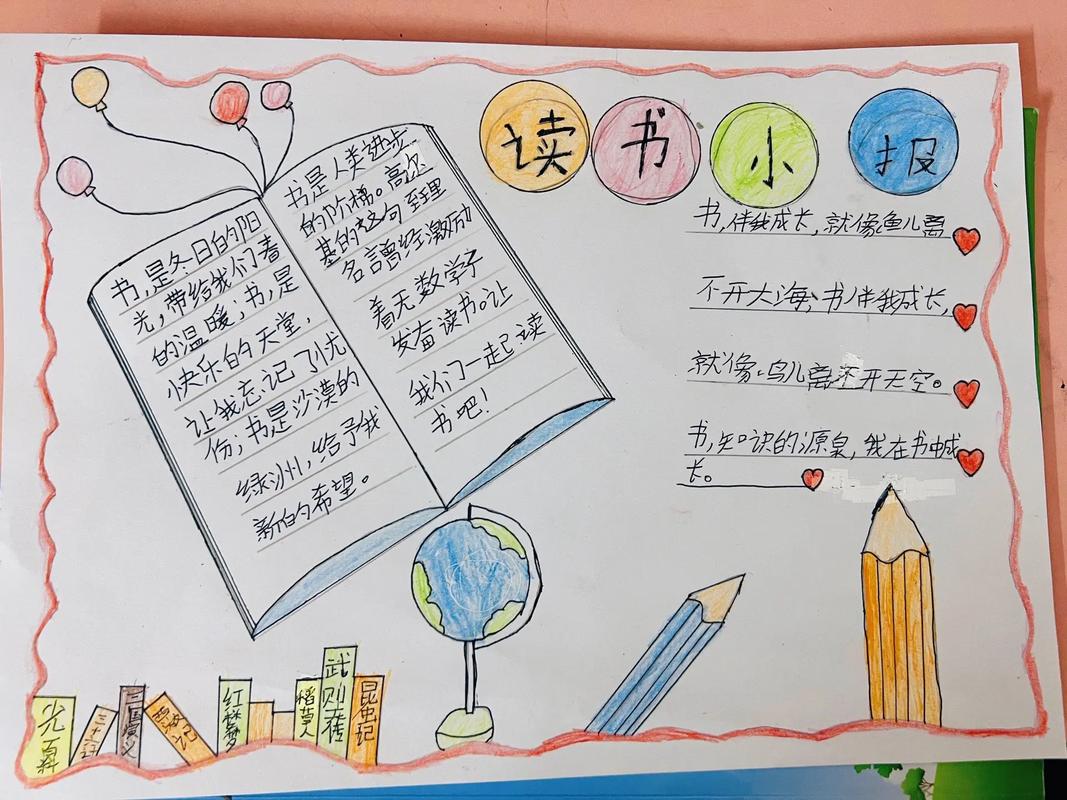 读书小报
书,是冬日的阳
光,带给我们着
的温暖;书,是
快乐的天堂,
让我忘记了忧
伤;书是沙漠的
绿洲,给予我
新的希望。
书是人类进步
的阶梯。高尔
基的这句至理
名言曾经激励
着无数学子
发奋读书。让
我们一起读
书吧!
书,伴我成长,就像鱼儿离
不开大海;书伴我成长,
就像鸟儿离不开天空。
书,知识的源泉,我在书中成
长。
三十六计
三国演义
红楼梦
稻草人
武则天传
昆虫记